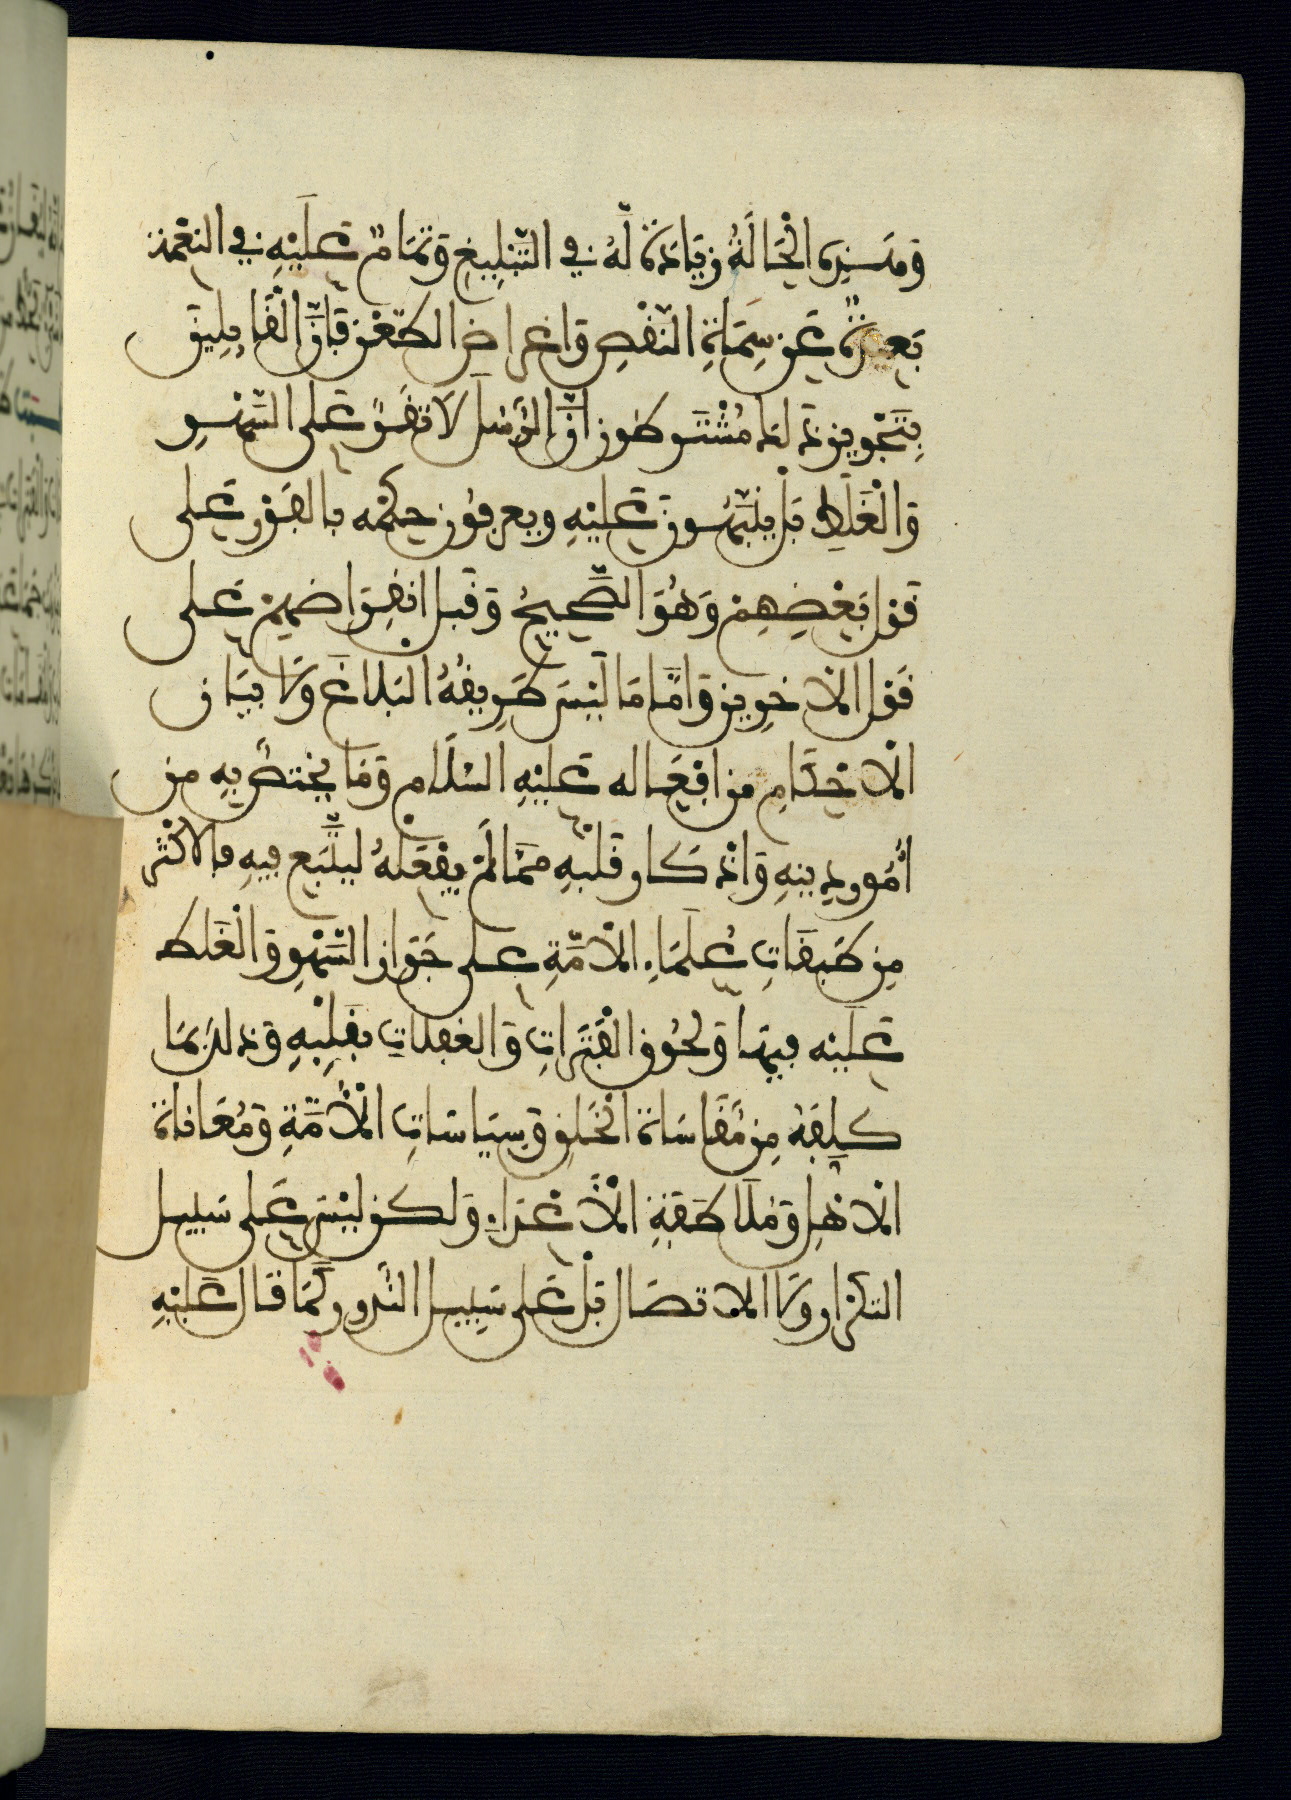 وهذه الحالة زيادة له في التبليغ وتمام عليه في النعمة
بعيدة عن سمات النقص واعراض الطعن فان القايلين
بتجويز ذلك مشترطون ان الرسل لا تقر على السهو
والغلط بل ينبهون عليه ويعرفون حكمه بالفور على
قول بعضهم وهو الصحيح وقبل انقراضهم على
قول الاخرين واما ما ليس طريقه البلاغ ولا بيان
الاحكام من افعاله عليه السلام وما يختص به من
امور دينه واذكار قلبه مما لم يفعله ليتبع فيه فالاكثر
من طبقات علماء الامة على جواز السهو والغلط
عليه فيها ولحوق الفترات والغفلات بقلبه وذلك بما
كلفه من مقاساة الخلق وسياسات الامة ومعاناة
الاهل وملاحظة الاعداء ولكن ليس على سبيل
التكرار ولا الاتصال بل على سبيل الندور كما قال عليه